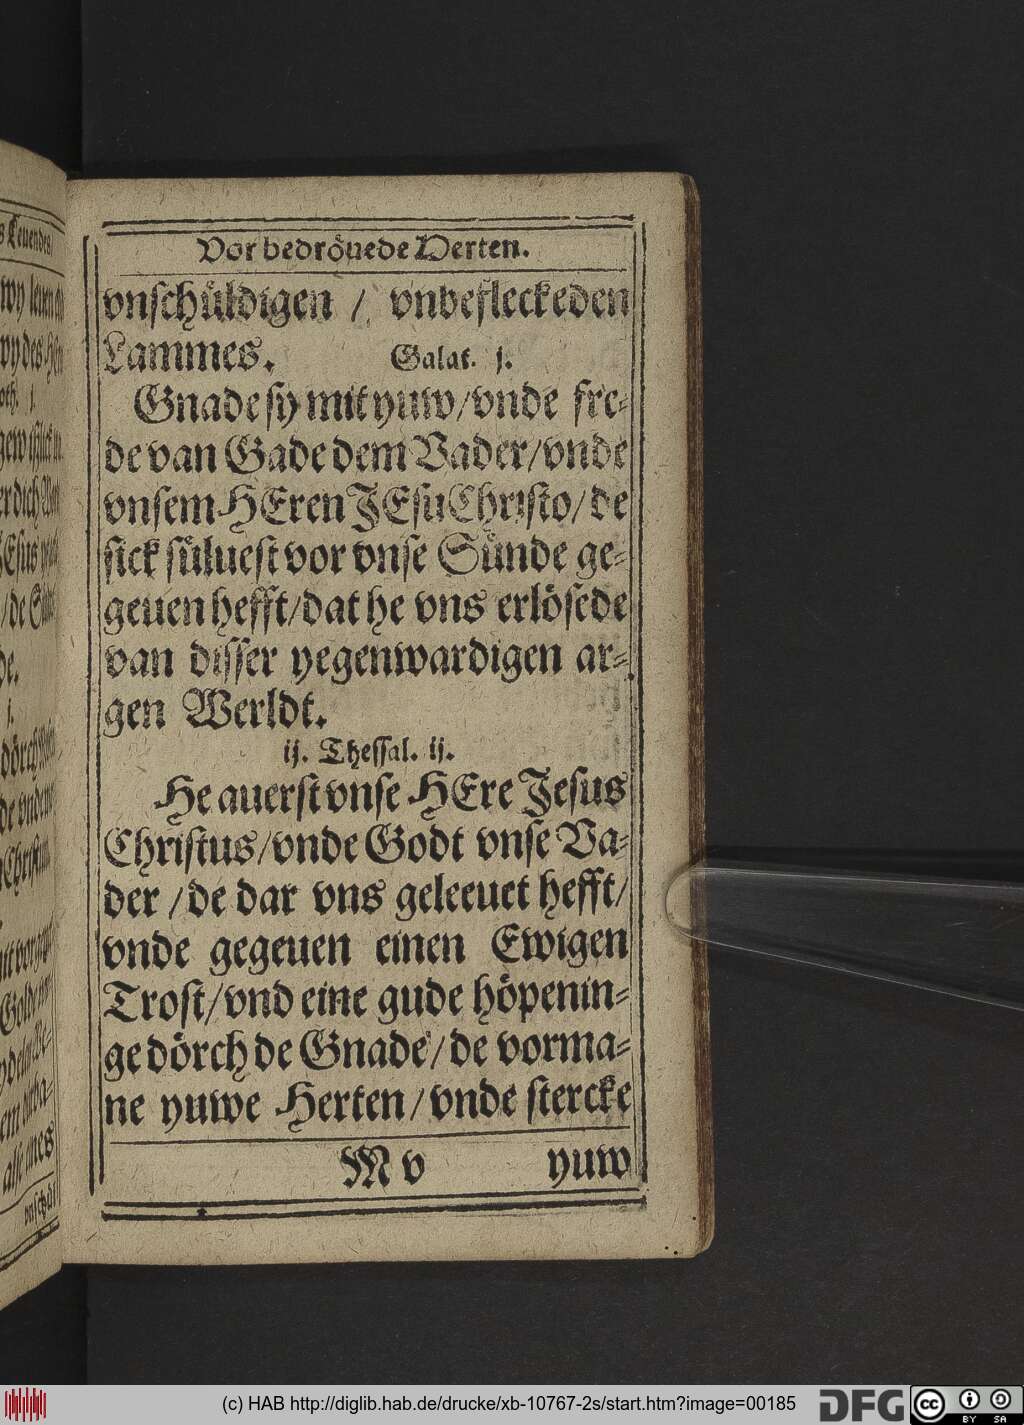 Vor bedröuede Herten.
vnschüldigen / vnbefleckeden
Lammes. Galat. j.
Gnade sy mit yuw/vnde fre-
de van Gade dem Vader/vnde
vnsem HEren JEsu Christo/de
sick süluest vor vnse Sünde ge-
geuen hefft/dat he vns erlösede
van disser yegenwardigen ar-
gen Werldt.
ij. Thessal. ij.
He auerst vnse HEre Jesus
Christus/vnde Godt vnse Va-
der /de dar vns geleeuet hefft/
vnde gegeuen einen Ewigen
Trost/vnd eine gude höpenin-
ge dörch de Gnade/de vorma-
ne yuwe Herten/vnde stercke
M v yuw
(c) HAB http://diglib.hab.de/drucke/xb-10767-2s/start.htm?image=00185
DFG
cc
BY SA